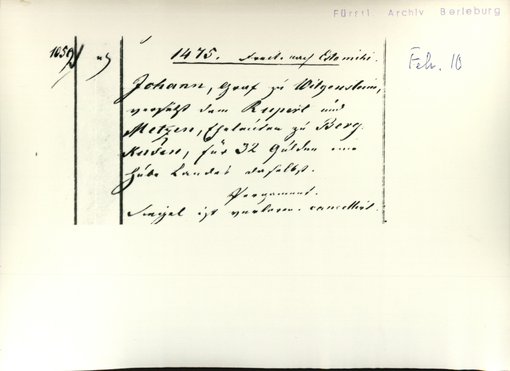 Fürstl. Archiv Berleburg
1059 1475. Freit. nach Estomihi.
Febr. 10
Johann, Graf zu Witgenstein,
versetzt dem Ruperti und
Metzen, Eheleuten zu Berg-
husen, für 32 Gülden eine
Hube Landes daselbst.
Pergament.
Siegel ist verloren. cancellirt.